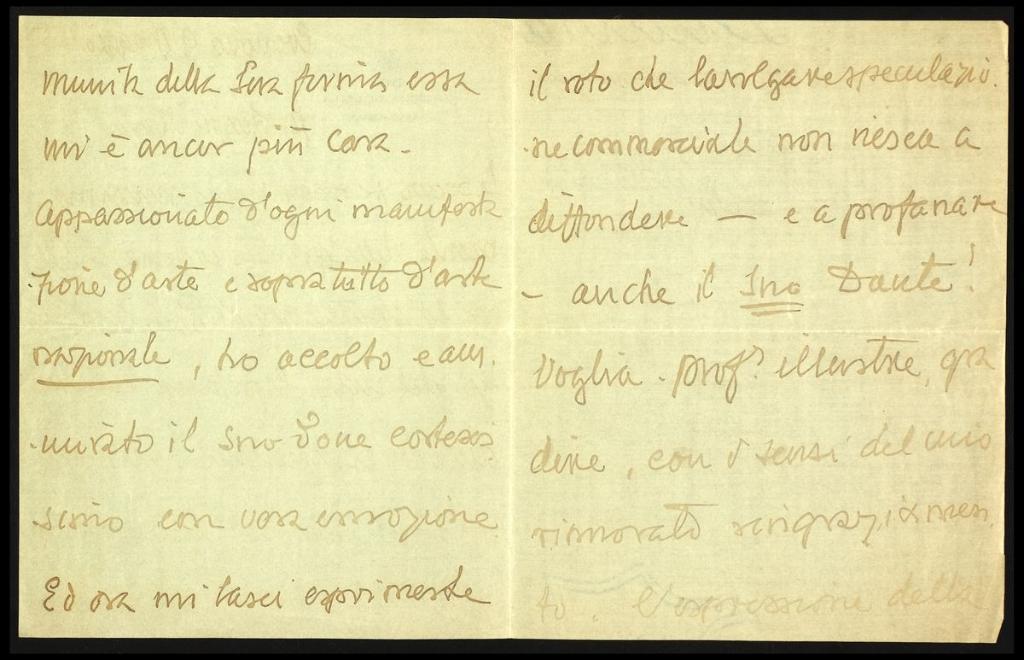 munita della Sua firma essa
mi è ancor più cara.
Appassionato d'ogni manifesta
zione d'arte e sopratutto d'arte
nazionale, ho accolto e am-
mirato il Suo dono cortesis
simo con vera emozione
Ed ora mi lasci esprimerle
il voto che la volgare speculazio-
ne commerciale non riesca a
diffondere — e a profanare
— anche il Suo Dante!
Voglia prof.r illustre, gra
dire, con i sensi del mio
rinnovato ringraziamen
to, l'espressione della